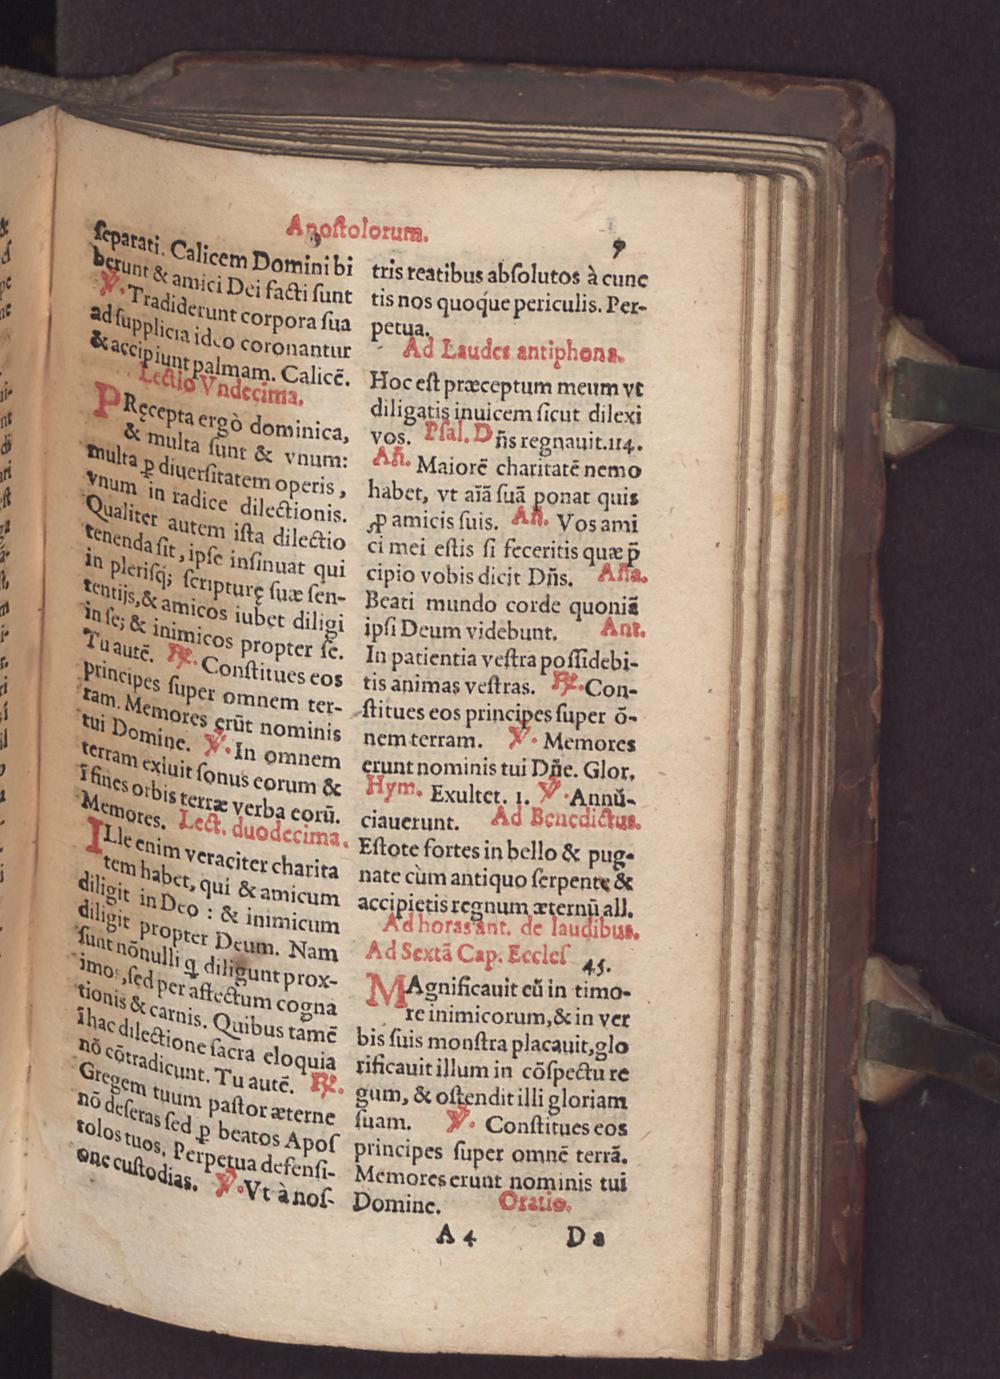 Apostolorum.
9
separati. Calicem Domini bi
berunt & amici Dei facti sunt
℣. Tradiderunt corpora sua
ad supplicia ideo coronantur
& accipiunt palmam. Calicē.
Lectio Vndecima.
PRęcepta ergò dominica,
& multa sunt & vnum:
multa ꝑ diuersitatem operis,
vnum in radice dilectionis.
Qualiter autem ista dilectio
tenenda sit, ipse insinuat qui
in plerisq; scripturę suæ sen-
tentijs, & amicos iubet diligi
in se; & inimicos propter se.
Tu autē. ℟. Constitues eos
principes super omnem ter-
ram. Memores erūt nominis
tui Domine. ℣. In omnem
terram exiuit sonus eorum &
ī fines orbis terræ verba eorū.
Memores. Lect. duodecima.
ILle enim veraciter charita
tem habet, qui & amicum
diligit in Deo : & inimicum
diligit propter Deum. Nam
sunt nōnulli q̄ diligunt prox-
imos, sed per affectum cogna
tionis & carnis. Quibus tamē
ī hac dilectione sacra eloquia
nō cōtradicunt. Tu autē. ℟.
Gregem tuum pastor æterne
nō deseras sed ꝑ beatos Apos
tolos tuos. Perpetua defensi-
one custodias. ℣. Vt à nos-
tris reatibus absolutos à cunc
tis nos quoque periculis. Per-
petua.
Ad Laudes antiphona.
Hoc est præceptum meum vt
diligatis inuicem sicut dilexi
vos. Psal. Dn̄s regnauit. 114.
An̄. Maiorē charitatē nemo
habet, vt aīā suā ponat quis
ꝓ amicis suis. An̄. Vos ami
ci mei estis si feceritis quæ p̄
cipio vobis dicit Dn̄s. An̄a.
Beati mundo corde quoniā
ipsi Deum videbunt. Ant.
In patientia vestra possidebi-
tis animas vestras. ℟. Con-
stitues eos principes super ō-
nem terram. ℣. Memores
erunt nominis tui Dn̄e. Glor.
Hym. Exultet. 1. ℣. Annū-
ciauerunt. Ad Benedictus.
Estote fortes in bello & pug-
nate cùm antiquo serpente &
accipietis regnum æternū all.
Ad horas ant. de laudibus.
Ad Sextā Cap. Eccles 45.
MAgnificauit eū in timo-
re inimicorum, & in ver
bis suis monstra placauit, glo
rificauit illum in cōspectu re
gum, & ostendit illi gloriam
suam. ℣. Constitues eos
principes super omnē terrā.
Memores erunt nominis tui
Domine. Oratio.
A 4 Da